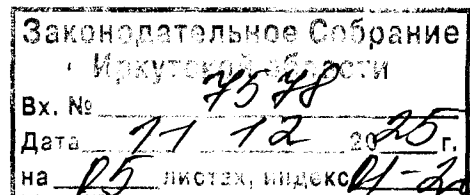 Законодательное Собрание
Иркутской области
Вх. № 7578
Дата 11 12 2025 г.
на 05 листах, индекс 01-2